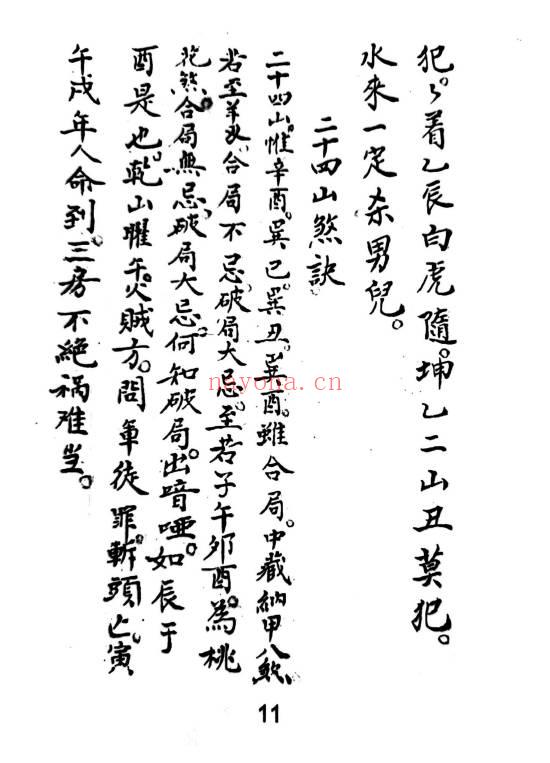 犯々着乙辰白虎随。坤乙二山丑莫犯。
水來一定杀男兒。
二十四山煞訣
二十四山。惟辛酉。巽巳。巽丑。巽酉。雖合局。中藏納甲八煞。
若至羊刃。合局不忌。破局大忌。至若子午卯酉。為桃
花煞。合局無忌。破局大忌。何知破局。出喑啞。如辰于
酉是也。乾山曜午火賊方。問軍徒罪斬頭亡。寅
午戌年人命到。三房不絕祸难当。
nayona.cn
11